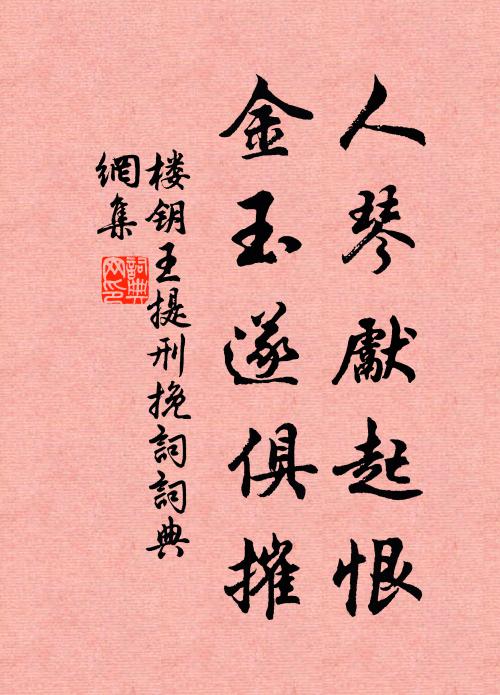 人琴獻起恨
金玉遂俱摧
楼钥王提刑挽詞詞典
網集
詞典網印